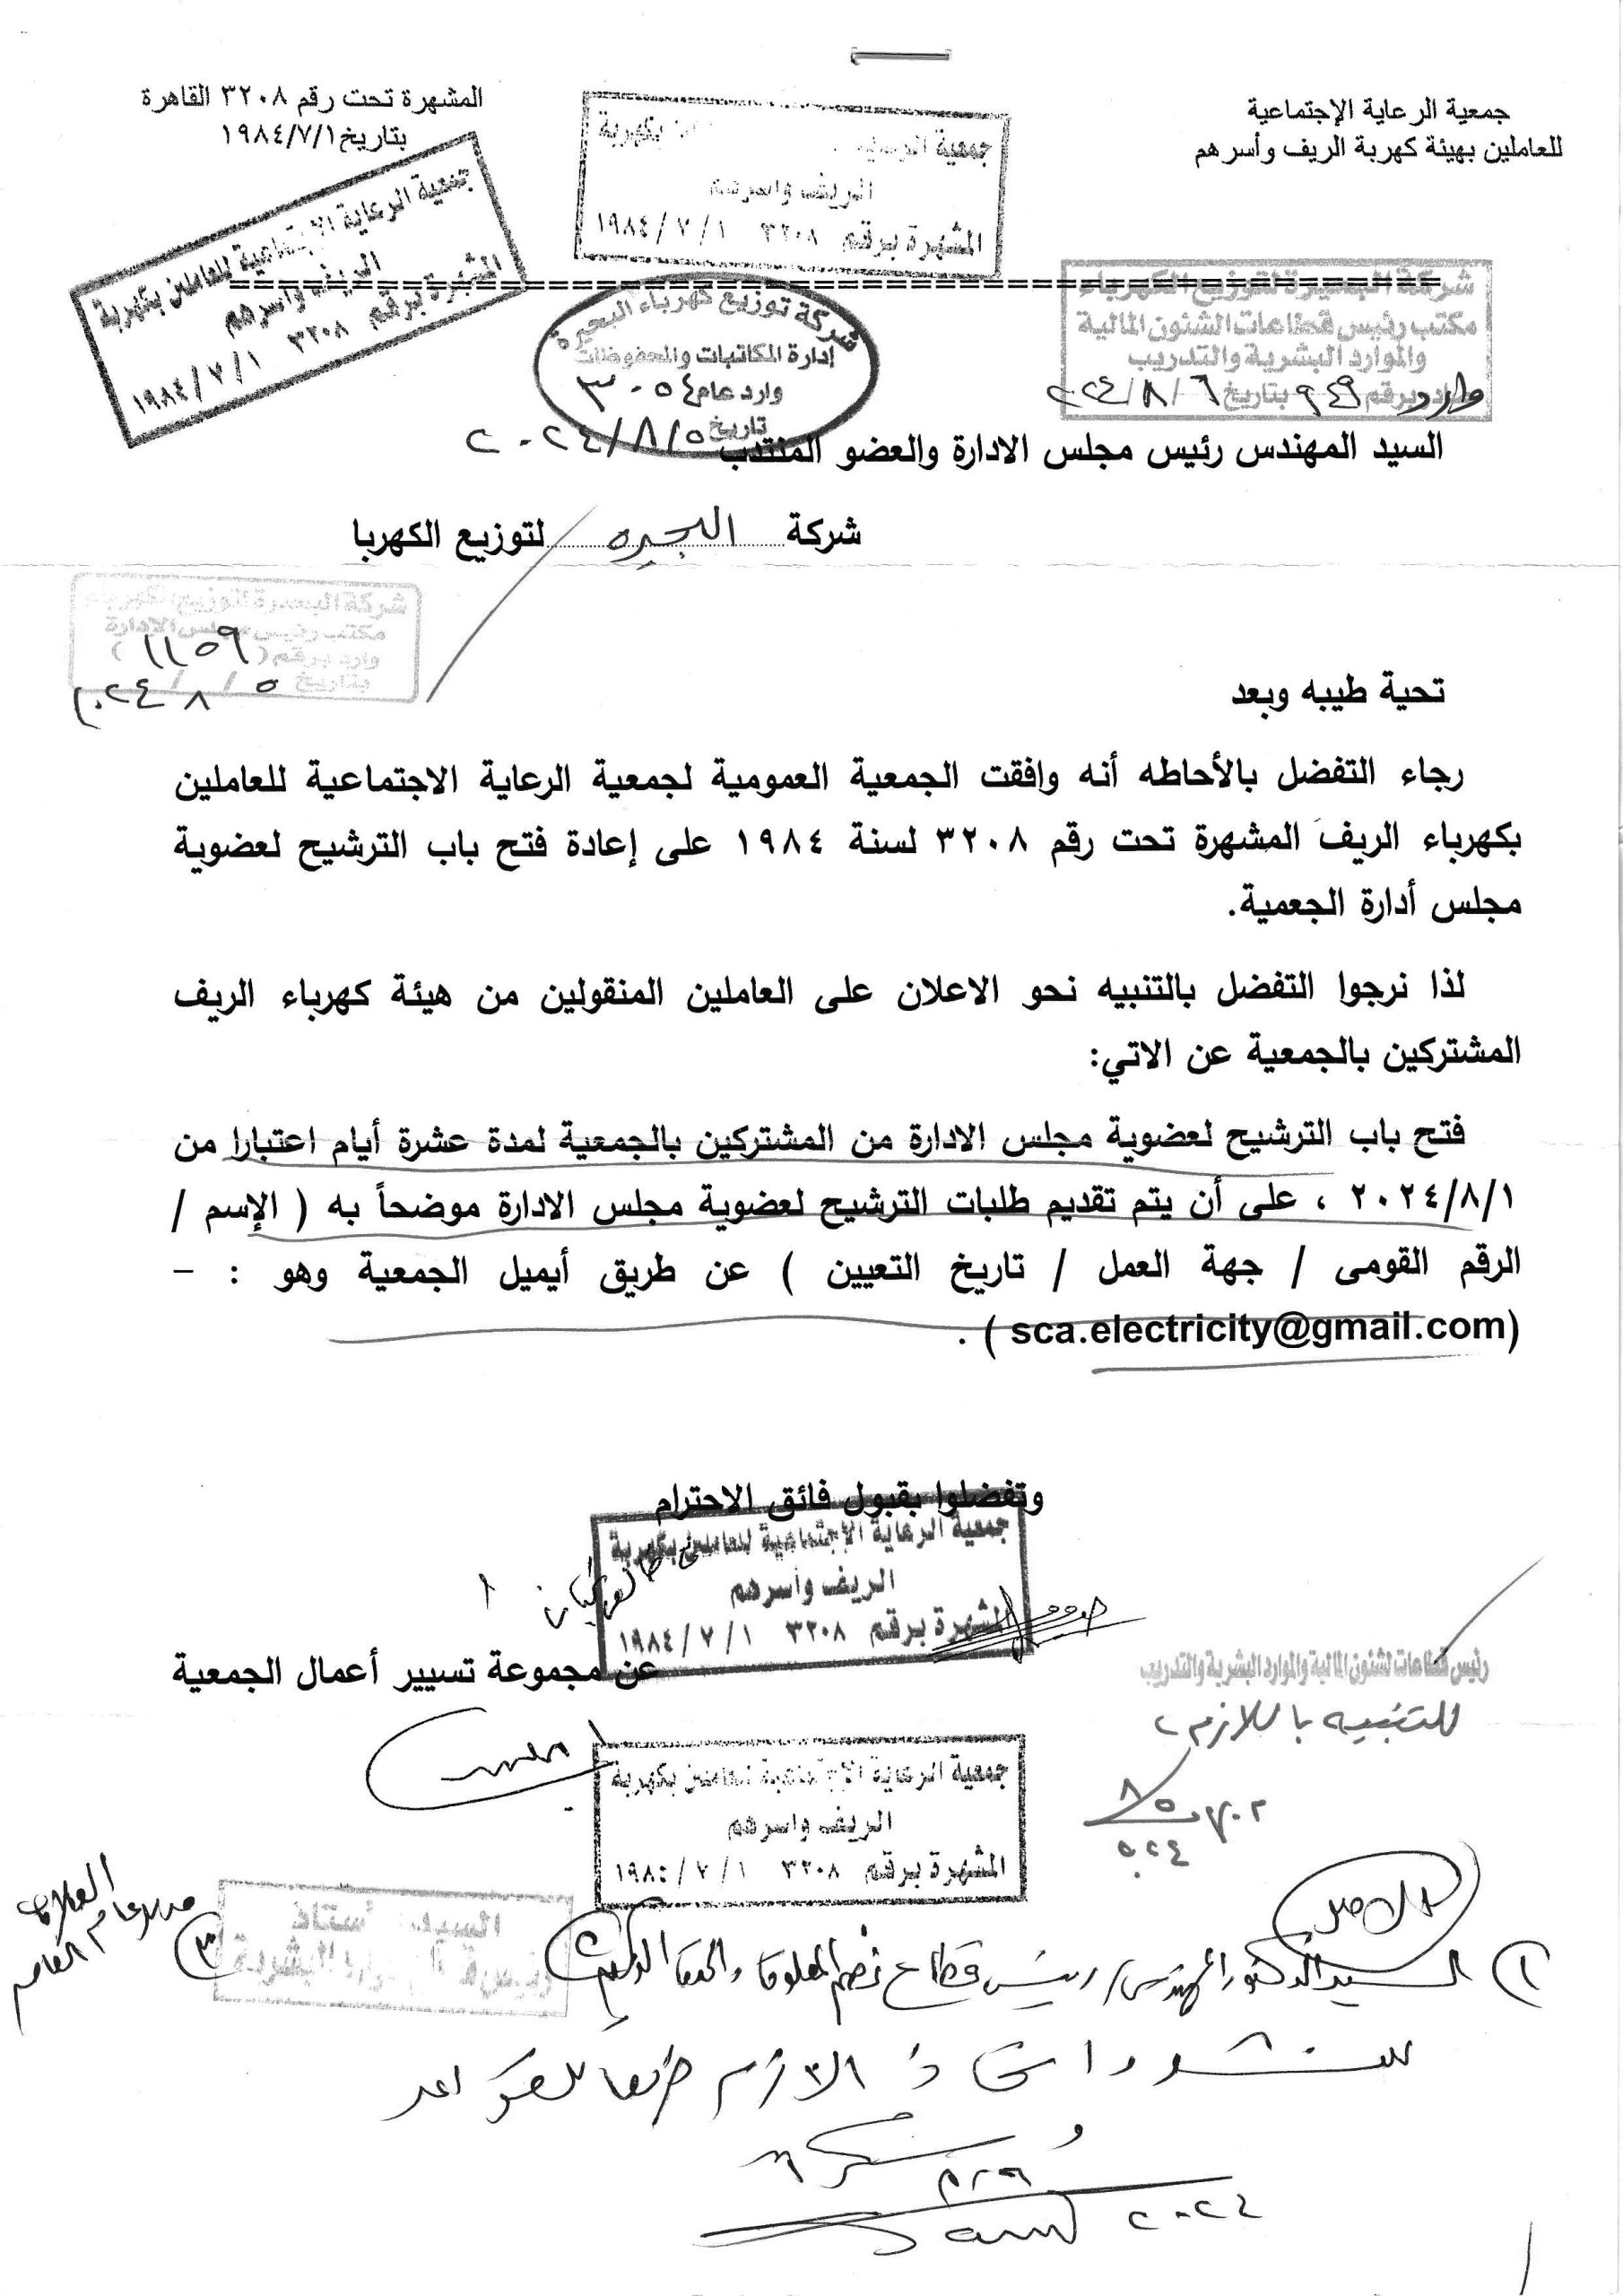 جمعية الرعاية الإجتماعية
للعاملين بهيئة كهربة الريف وأسرهم
المشهرة تحت رقم ٣٢٠٨ القاهرة
بتاريخ ١٩٨٤/٧/١
جمعية الرعاية بكهربة
الريف واسرهم
المشهرة برقم ٣٢٠٨ ١٩٨٤/٧/١
جمعية الرعاية الإجتماعية للعاملين بكهربة
الريف واسرهم
المشهرة برقم ٣٢٠٨ ١٩٨٤/٧/١
شركة البحيرة لتوزيع الكهرباء
مكتب رئيس قطاعات الشئون المالية
والموارد البشرية والتدريب
وارد برقم ٩٤٩ بتاريخ ٢٠٢٤/٨/٦
شركة توزيع كهرباء البحيرة
إدارة المكاتبات والمحفوظات
وارد عام ٣٠٥٤
تاريخ ٢٠٢٤/٨/٥
السيد المهندس رئيس مجلس الادارة والعضو المنتدب
شركة البحيره لتوزيع الكهربا
شركة البحيرة لتوزيع الكهرباء
مكتب رئيس مجلس الادارة
وارد برقم ( ١١٥٩ )
بتاريخ ٥ / ٨ / ٢٠٢٤
تحية طيبه وبعد
رجاء التفضل بالأحاطه أنه وافقت الجمعية العمومية لجمعية الرعاية الاجتماعية للعاملين
بكهرباء الريف المشهرة تحت رقم ٣٢٠٨ لسنة ١٩٨٤ على إعادة فتح باب الترشيح لعضوية
مجلس أدارة الجعمية.
لذا نرجوا التفضل بالتنبيه نحو الاعلان على العاملين المنقولين من هيئة كهرباء الريف
المشتركين بالجمعية عن الاتي:
فتح باب الترشيح لعضوية مجلس الادارة من المشتركين بالجمعية لمدة عشرة أيام اعتبارا من
٢٠٢٤/٨/١ ، على أن يتم تقديم طلبات الترشيح لعضوية مجلس الادارة موضحاً به ( الإسم /
الرقم القومى / جهة العمل / تاريخ التعيين ) عن طريق أيميل الجمعية وهو : -
(sca.electricity@gmail.com ) .
وتفضلوا بقبول فائق الاحترام
جمعية الرعاية الإجتماعية للعاملين بكهربة
الريف واسرهم
المشهرة برقم ٣٢٠٨ ١٩٨٤/٧/١
عن مجموعة تسيير أعمال الجمعية
رئيس قطاعات الشئون المالية والموارد البشرية والتدريب
للتنبيه باللازم
جمعية الرعاية الإجتماعية للعاملين بكهربة
الريف واسرهم
المشهرة برقم ٣٢٠٨ ١٩٨٤/٧/١
السيد الدكتور المهندس / رئيس قطاع نظم المعلومات
للنشر واتخاذ اللازم طبقا للقواعد
٢٠٢٤